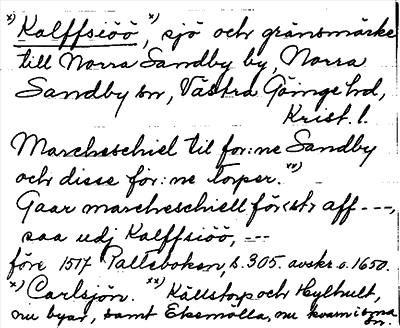 x) Kalffsiöö, x) sjö och gränsmärke
till Norra Sandby by, Norra
Sandby sn, Västra Göinge hd,
Krist. l.
Marcheschiel til for:ne Sandby
och disse för:ne torper. xx)
Gaar marcheschiell för<st> aff ---,
saa udj Kalffsiöö, ---
före 1517 Palteboken, s. 305. avskr. o. 1650.
x) Carlsjön. xx) Källstorp och Hylhult,
nu byar, samt Ekemölla, nu kvarnställe
sn.